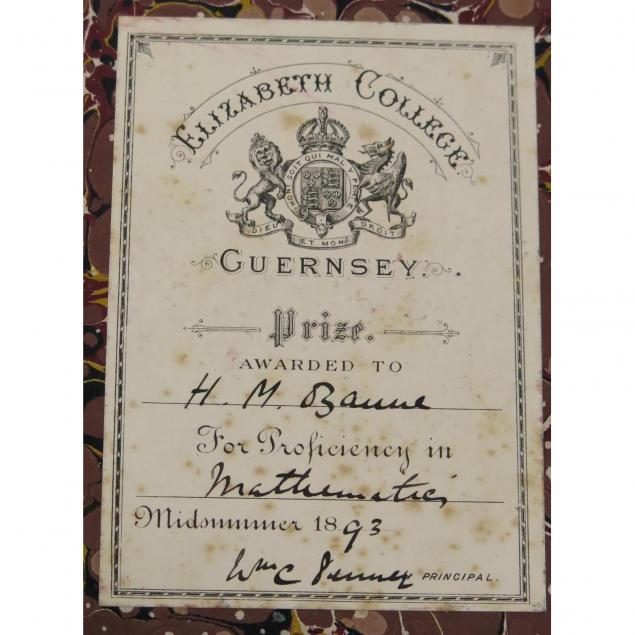 ELIZABETH COLLEGE.
HONI SOIT QUI MAL Y PENSE
DIEU ET MON DROIT
GUERNSEY.
Prize.
AWARDED TO
H. M.
For Proficiency in
Mathematics
Midsummer 1893
Wm C Penney PRINCIPAL.